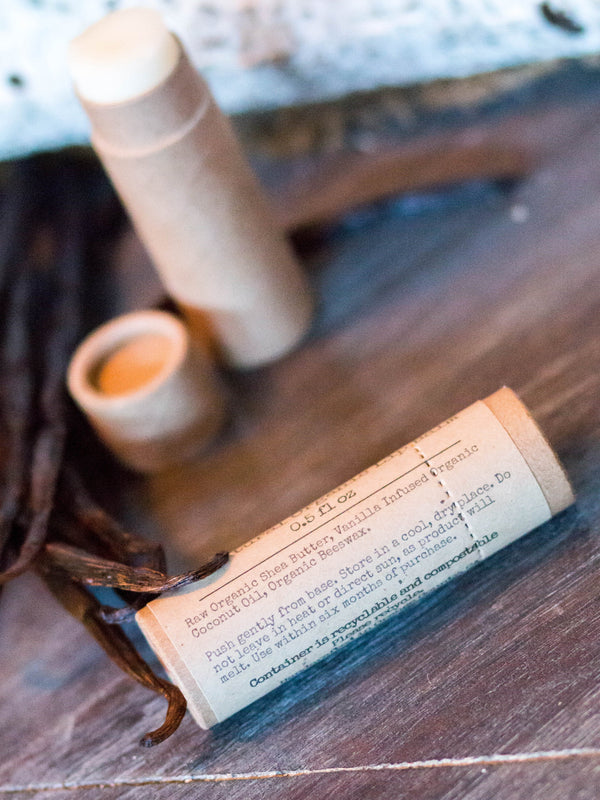 0.5 fl oz
Raw Organic Shea Butter, Vanilla Infused Organic
Coconut Oil, Organic Beeswax.
Push gently from base. Store in a cool, dry place. Do
not leave in heat or direct sun, as product will
melt. Use within six months of purchase.
Container is recyclable and compostable
Please recycle.